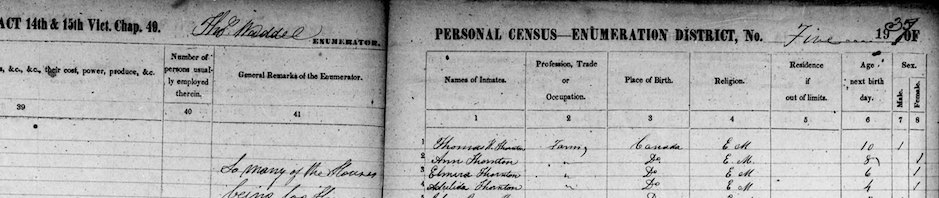 ACT 14th & 15th Vict. Chap. 49.
Thos Waddel
ENUMERATOR.
s, &c., &c., their cost, power, produce, &c.
Number of persons usually employed therein.
General Remarks of the Enumerator.
39 40 41
So many of the Houses
being
PERSONAL CENSUS—ENUMERATION DISTRICT, No. Five 19 OF
Names of Inmates.
Profession, Trade or Occupation.
Place of Birth.
Religion.
Residence if out of limits.
Age next birth day.
Sex.
Male.
Female.
1 2 3 4 5 6 7 8
1 Thomas Thornton Farm, Canada E M 10 1
2 Ann Thornton " Do E M. 8 1
3 Elmira Thornton " Do E M 6 1
4 Thornton " Do E M 4 1